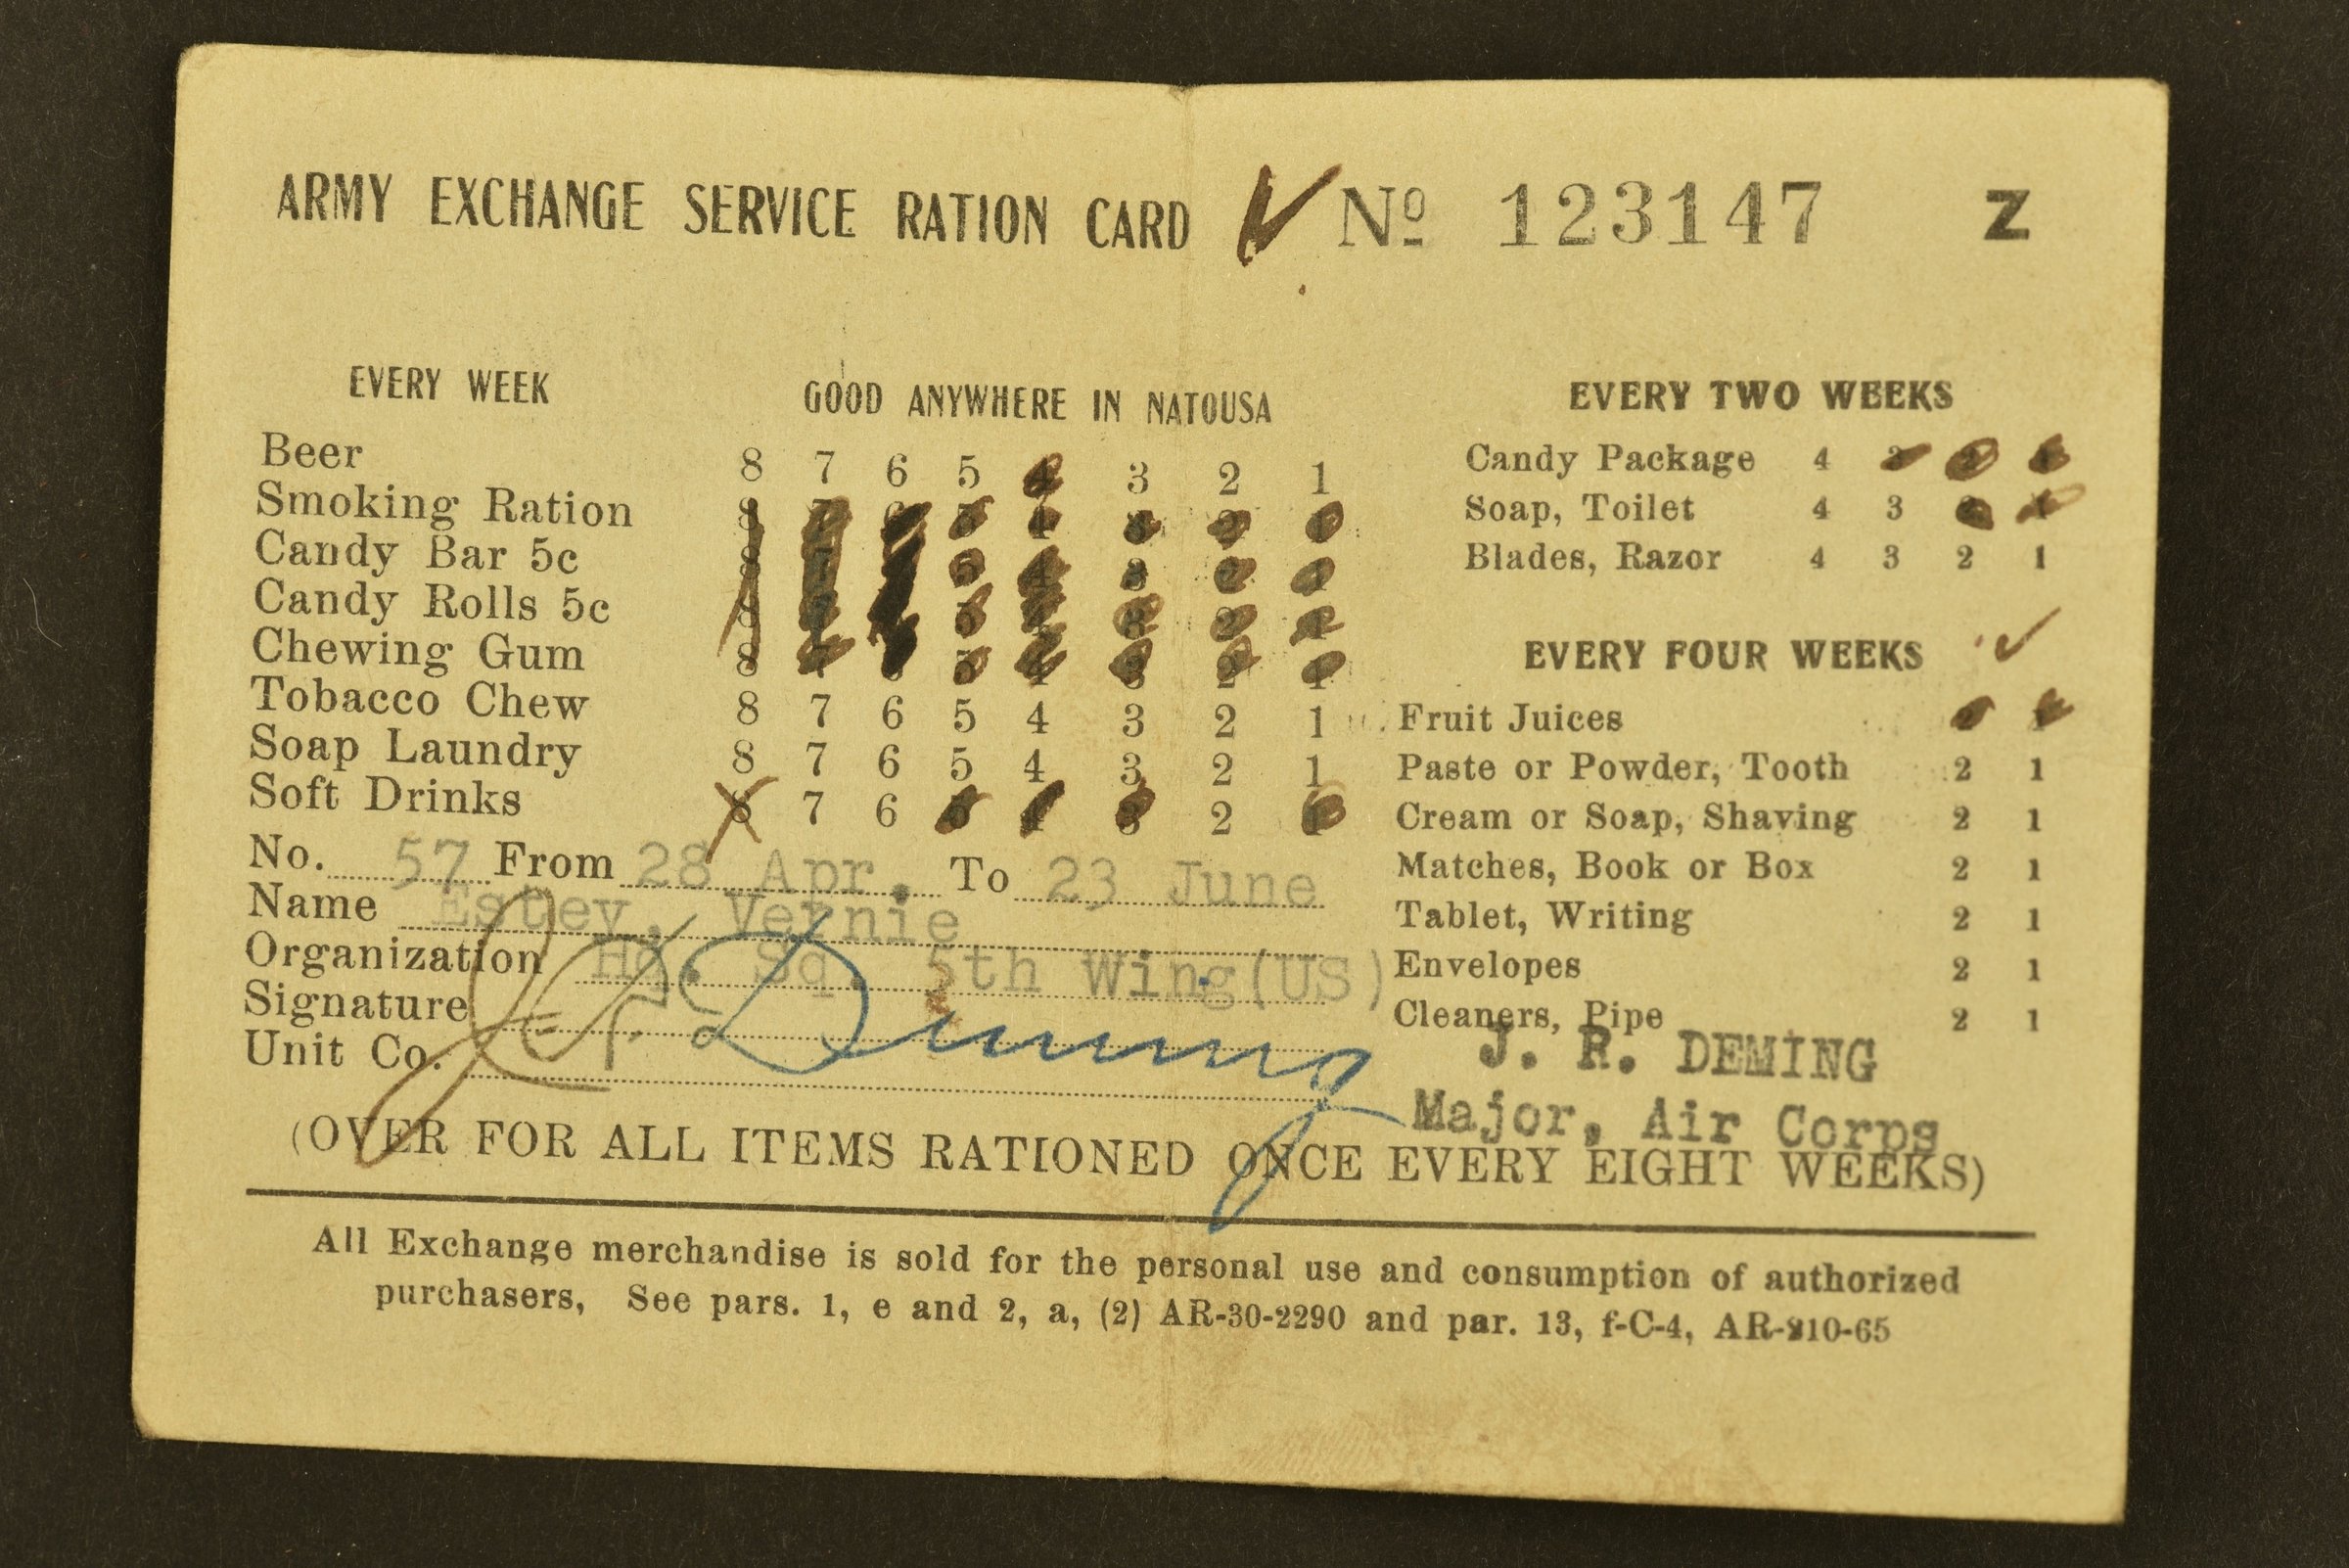 ARMY EXCHANGE SERVICE RATION CARD Nº 123147 Z
EVERY WEEK GOOD ANYWHERE IN NATOUSA
Beer 8 7 6 5 4 3 2 1
Smoking Ration 8 7 6 5 4 3 2 1
Candy Bar 5c 8 7 5 4 3 2 1
Candy Rolls 5c 8 5 4 3 2 1
Chewing Gum 8 7 6 5 4 3 2 1
Tobacco Chew 8 7 6 5 4 3 2 1
Soap Laundry 8 7 6 5 4 3 2 1
Soft Drinks 8 7 6 5 4 3 2 1
No. 57 From 28 Apr. To 23 June
Name Estey, Vernie
Organization Hq. Sq. 5th Wing(US)
Signature
Unit Co.
EVERY TWO WEEKS
Candy Package 4 3 2 1
Soap, Toilet 4 3 2 1
Blades, Razor 4 3 2 1
EVERY FOUR WEEKS
Fruit Juices 2 1
Paste or Powder, Tooth 2 1
Cream or Soap, Shaving 2 1
Matches, Book or Box 2 1
Tablet, Writing 2 1
Envelopes 2 1
Cleaners, Pipe 2 1
J. R. DEMING
Major, Air Corps
(OVER FOR ALL ITEMS RATIONED ONCE EVERY EIGHT WEEKS)
All Exchange merchandise is sold for the personal use and consumption of authorized
purchasers, See pars. 1, e and 2, a, (2) AR-30-2290 and par. 13, f-C-4, AR-210-65